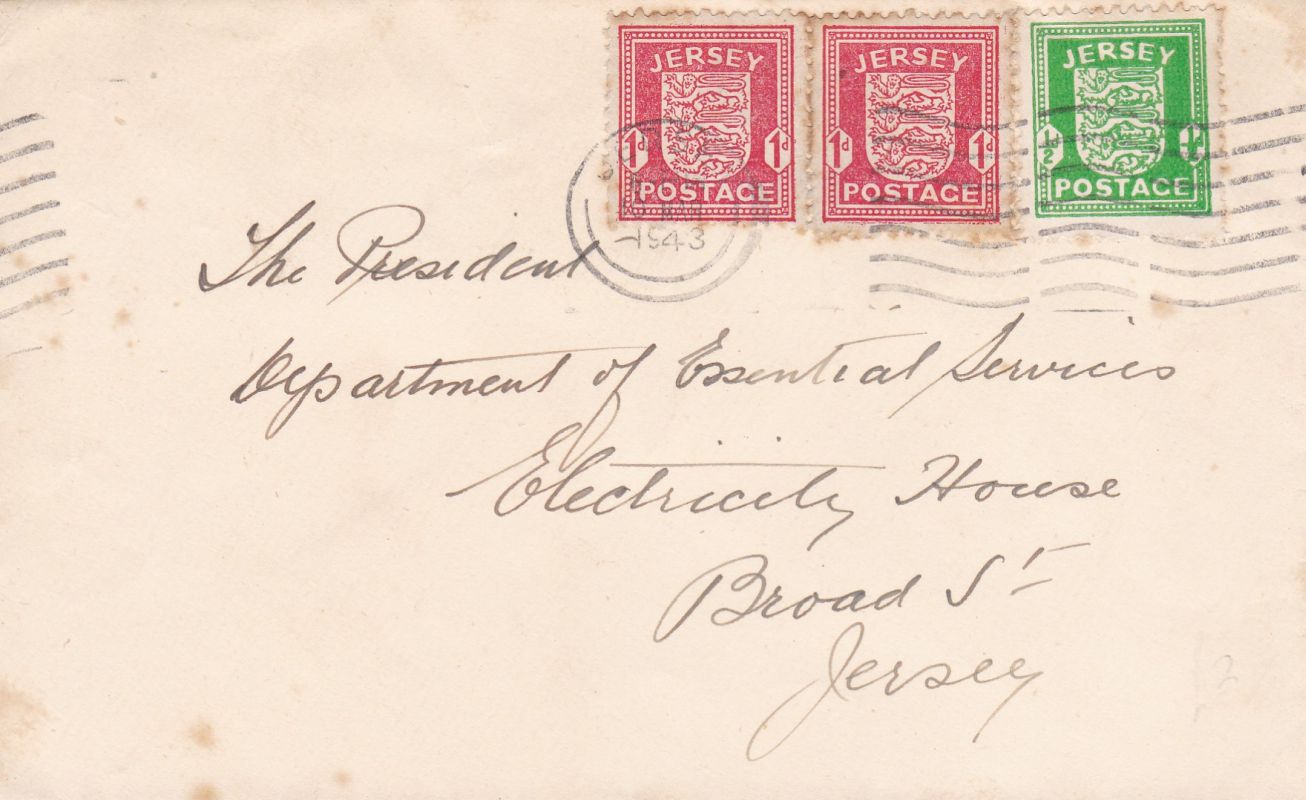 JERSEY JERSEY JERSEY
1d 1d 1d 1d 1/2
POSTAGE POSTAGE POSTAGE
1943
The President
Department of Essential Services
Electricity House
Broad St
Jersey